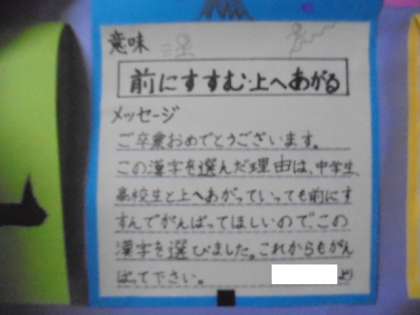 意味
前にすすむ・上へあがる
メッセージ
ご卒業おめでとうございます。
この漢字を選んだ理由は、中学生、
高校生と上へあがっていっても前にす
すんでがんばってほしいので、この
漢字を選びました。これからもがん
ばって下さい。
より